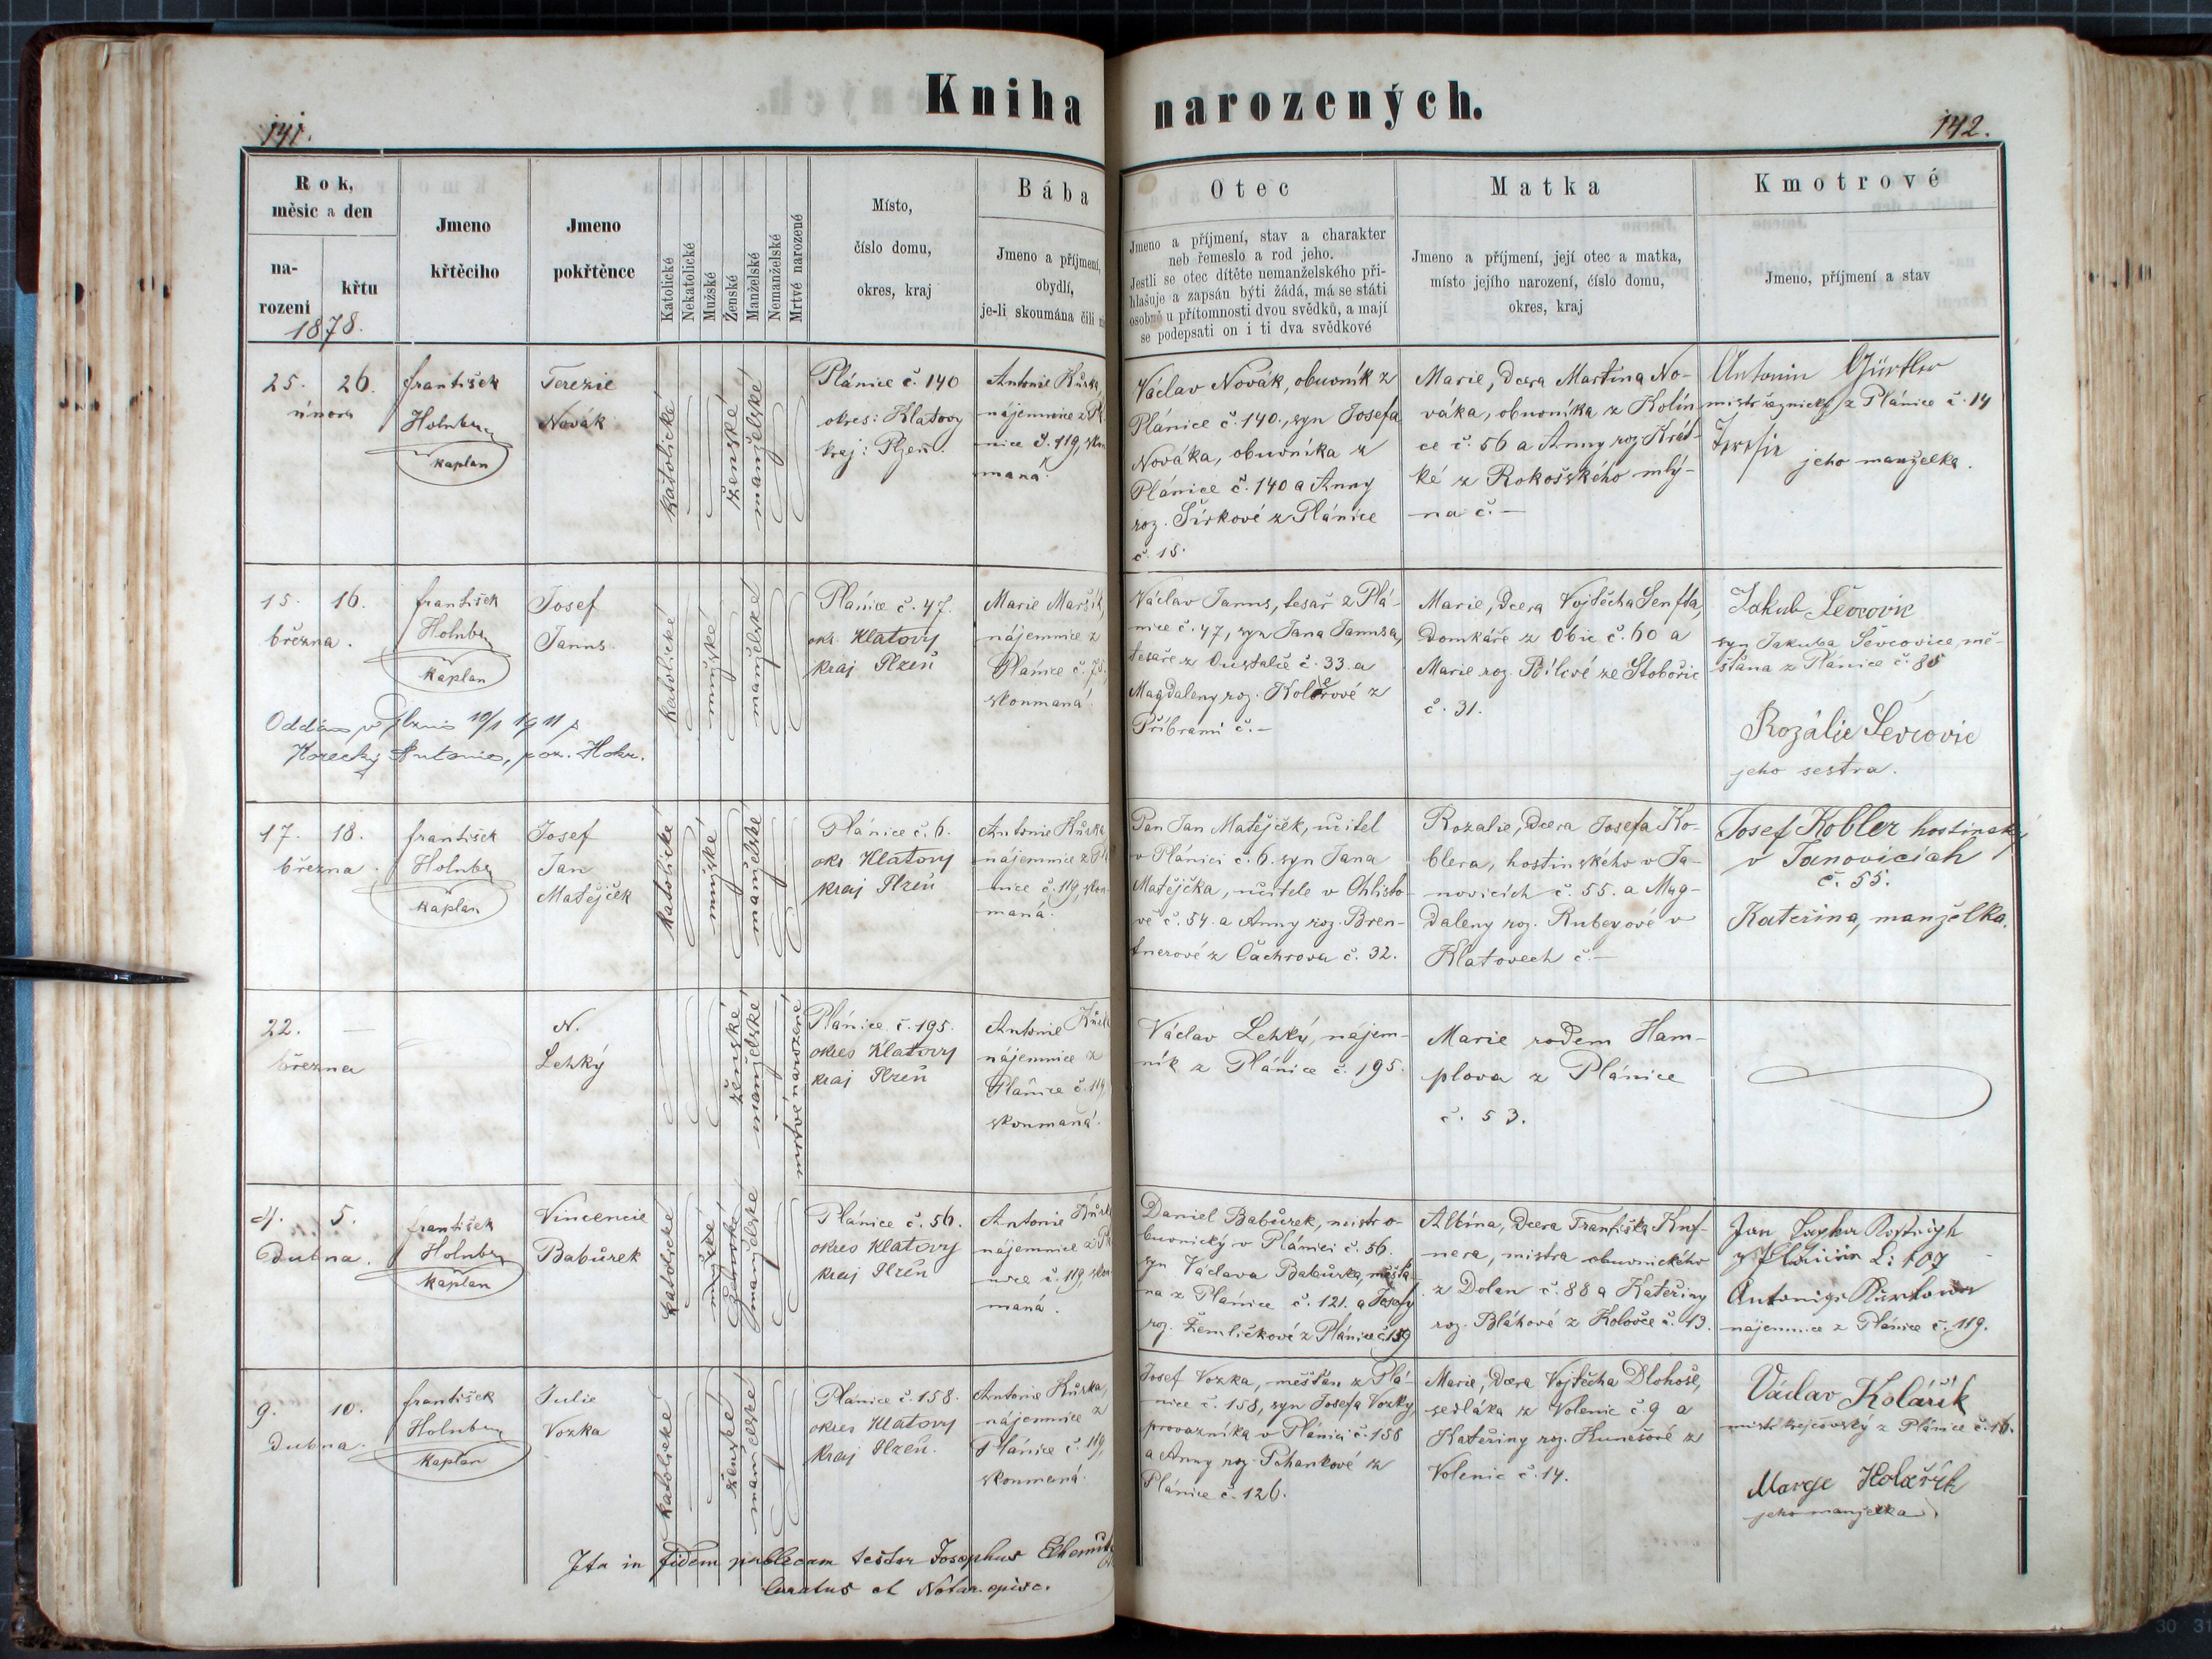 Kniha narozených.
141.
142.
Rok,
měsíc a den
na-
rozeni
křtu
1878.
Jmeno
křtěcího
Jmeno
pokřtěnce
Katolické
Nekatolické
Mužské
Ženské
Manželské
Nemanželské
Mrtvé narozené
Místo,
číslo domu,
okres, kraj
Bába
Jmeno a příjmení,
obydlí,
je-li skoumána čili
Otec
Jmeno a příjmení, stav a charakter
neb řemeslo a rod jeho.
Jestli se otec dítěte nemanželského při-
hlašuje a zapsán býti žádá, má se státi
osobně u přítomnosti dvou svědků, a mají
se podepsati on i ti dva svědkové
Matka
Jmeno a příjmení, její otec a matka,
místo jejího narození, číslo domu,
okres, kraj
Kmotrové
Jmeno, příjmení a stav
25. 26.
února
František
Holub
kaplan
Terezie
Novák
katolické
ženské
manželské
Plánice č. 140
okres: Klatovy
kraj: Plzeň.
Antonie Kůrka,
nájemnice z Plá
nice č. 119, skou
maná.
Václav Novák, obuvník z
Plánice č. 140., syn Josefa
Nováka, obuvníka z
Plánice č. 140 a Anny
roz. Šírkové z Plánice
č. 15.
Marie, dcera Martina No-
váka, obuvníka z Kolín
ce č. 56 a Anny roz. Krát-
ké z Rokošského mlý-
na č. —
Antonin Gürtler
mistr řeznický z Plánice č. 14
Teresia
jeho manželka.
15. 16.
března.
František
Kaplan
Josef
Janns
katolické
mužské
manželské
Plánice č. 47.
okr. Klatovy
kraj Plzeň
Marie Maršík,
nájemnice z
Plánice č. 75,
skoumaná.
Václav Janns, tesař z Plá-
nice č. 47, syn Jana Jannsa,
tesaře z Oustalče č. 33. a
Magdaleny roz. Kolerové z
Příbrami č. —
Marie, dcera Vojtěcha Senfta,
domkáře z Obic č. 60 a
Marie roz. Bílové ze Stobořic
č. 31.
Jakub Ševcovic
syn Jakuba Ševcovice, mě-
šťana z Plánice č. 85
Rozálie Ševcovic
jeho sestra.
Oddán v Plzni 10/1 1911 s
Antonie,
17. 18.
března
František
kaplan
Josef
Jan
Matějček
katolické
mužské
manželské
Plánice č. 6.
okr. Klatovy
kraj Plzeň
Antonie Kůrka
nájemnice z Plá
nice č. 119, skou-
maná.
Pan Jan Matějček, učitel
v Plánici č. 6. syn Jana
Matějčka, učitele v Ohlisto-
vě č. 54. a Anny roz. Bren-
tnerové z Čachrova č. 32.
Rozalie, dcera Josefa Ko-
blera, hostinského v Ja-
novicích č. 55. a Mag-
daleny roz. Rubeyové v
Klatovech č. —
Josef Kobler hostinský
v Janovicích
č. 55.
Kateřina, manželka.
22. —
března
N.
Lehký
ženské
manželské
mrtvé narozené
Plánice č. 195.
okres Klatovy
kraj Plzeň
Antonie Kůrka
nájemnice z
Plánice č. 119,
skoumaná.
Václav Lehký, nájem-
ník z Plánice č. 195.
Marie rodem Ham-
plova z Plánice
č. 53.
4. 5.
dubna.
František
kaplan
Vincencie
Babůrek
katolické
ženské
manželské
Plánice č. 56.
okres Klatovy
kraj Plzeň
Antonie Kůrka
nájemnice z Plá
nice č. 119, skou-
maná.
Daniel Babůrek, mistr o-
buvnický v Plánici č. 56.
syn Václava Babůrka, měšťa-
na z Plánice č. 121. a Josefy
roz. Žemličkové z Plánice č. 159
Albína, dcera Františka Knf-
nera, mistra obuvnického
z Dolan č. 88 a Kateřiny
roz. Bláhové z Kolovče č. 43.
Jan
107
nájemnice z Plánice č. 119.
9. 10.
dubna.
František
Kaplan
Julie
Vozka
katolické
ženské
manželské
Plánice č. 158.
okres Klatovy
kraj Plzeň.
Antonie Kůrka,
nájemnice z
Plánice č. 119,
skoumaná.
Josef Vozka, měšťan z Plá-
nice č. 158, syn Josefa Vozky,
provazníka v Plánici č. 158
a Anny roz. Pohankové z
Plánice č. 126.
Marie, dcera Vojtěcha Dlohoše,
sedláka z Volenic č. 9 a
Kateřiny roz. Kunešové z
Volenic č. 14.
Václav Kolařík
mistr krejčovský z Plánice č. 16.
Marye Kolařík
jeho manželka
Ita in fidem publicam testor Josephus
Curatus et Notar. episc.